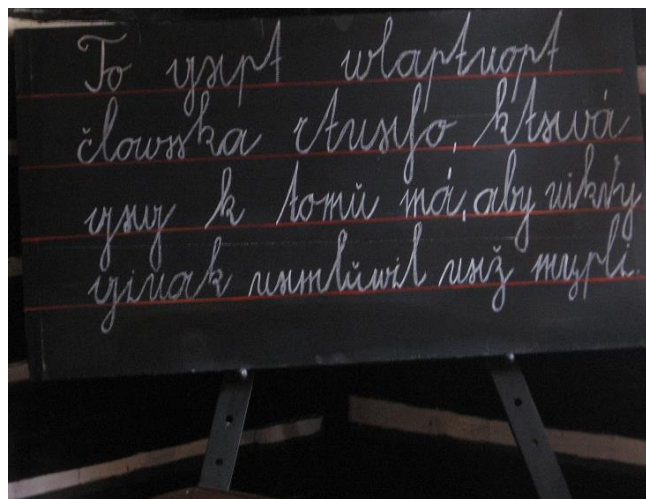 To gest wlastnost
človeka ctneho, která
geg k tomu má, aby nikdy
ginak nemluwil než mysli.